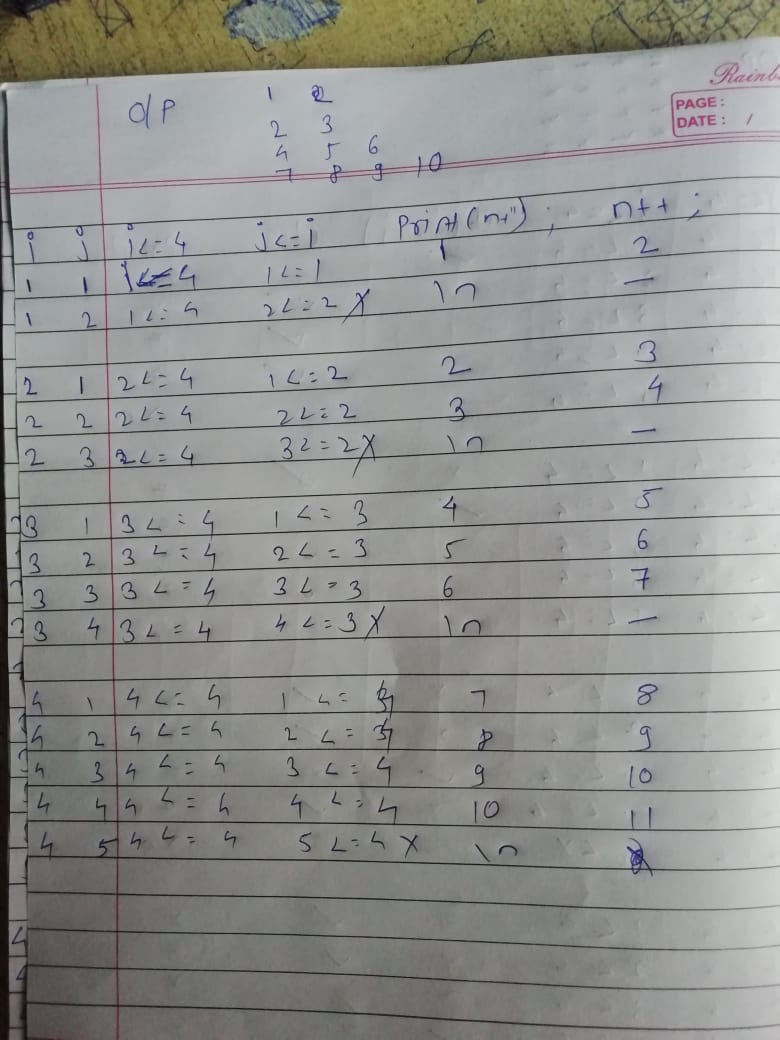 Rainb
PAGE:
DATE: /
O/P 1 2
2 3
4 5 6
7 8 9 10
i j i<=4 j<=i Print(n+""); n++;
1 1 1<=4 1<=1 1 2
1 2 1<=4 2<=2 X ln —
2 1 2<=4 1<=2 2 3
2 2 2<=4 2<=2 3 4
2 3 2<=4 3<=2X ln —
3 1 3<=4 1<=3 4 5
3 2 3<=4 2<=3 5 6
3 3 3<=4 3<=3 6 7
3 4 3<=4 4<=3X ln —
4 1 4<=4 1<=4 7 8
4 2 4<=4 2<=4 8 9
4 3 4<=4 3<=4 9 10
4 4 4<=4 4<=4 10 11
4 5 4<=4 5<=4 X ln